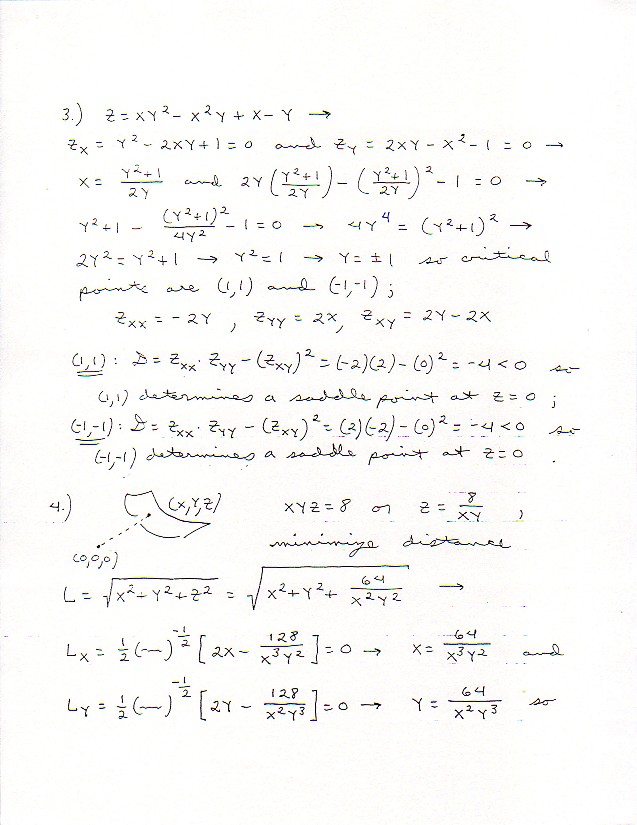 3.) Z = XY² - X²Y + X - Y →
Z_X = Y² - 2XY + 1 = 0 and Z_Y = 2XY - X² - 1 = 0 →
X = (Y²+1)/(2Y) and 2Y((Y²+1)/(2Y)) - ((Y²+1)/(2Y))² - 1 = 0 →
Y² + 1 - (Y²+1)²/(4Y²) - 1 = 0 → 4Y⁴ = (Y²+1)² →
2Y² = Y² + 1 → Y² = 1 → Y = ±1 so critical
points are (1,1) and (-1,-1) ;
Z_XX = -2Y , Z_YY = 2X, Z_XY = 2Y - 2X
(1,1) : D = Z_XX · Z_YY - (Z_XY)² = (-2)(2) - (0)² = -4 < 0 so
(1,1) determines a saddle point at Z = 0 ;
(-1,-1) : D = Z_XX · Z_YY - (Z_XY)² = (2)(-2) - (0)² = -4 < 0 so
(-1,-1) determines a saddle point at Z = 0 .
4.) (X,Y,Z) XYZ = 8 or Z = 8/(XY) ,
(0,0,0) minimize distance
L = √(X² + Y² + Z²) = √(X² + Y² + 64/(X²Y²)) →
L_X = 1/2 (—)^(-1/2) [2X - 128/(X³Y²)] = 0 → X = 64/(X³Y²) and
L_Y = 1/2 (—)^(-1/2) [2Y - 128/(X²Y³)] = 0 → Y = 64/(X²Y³) so